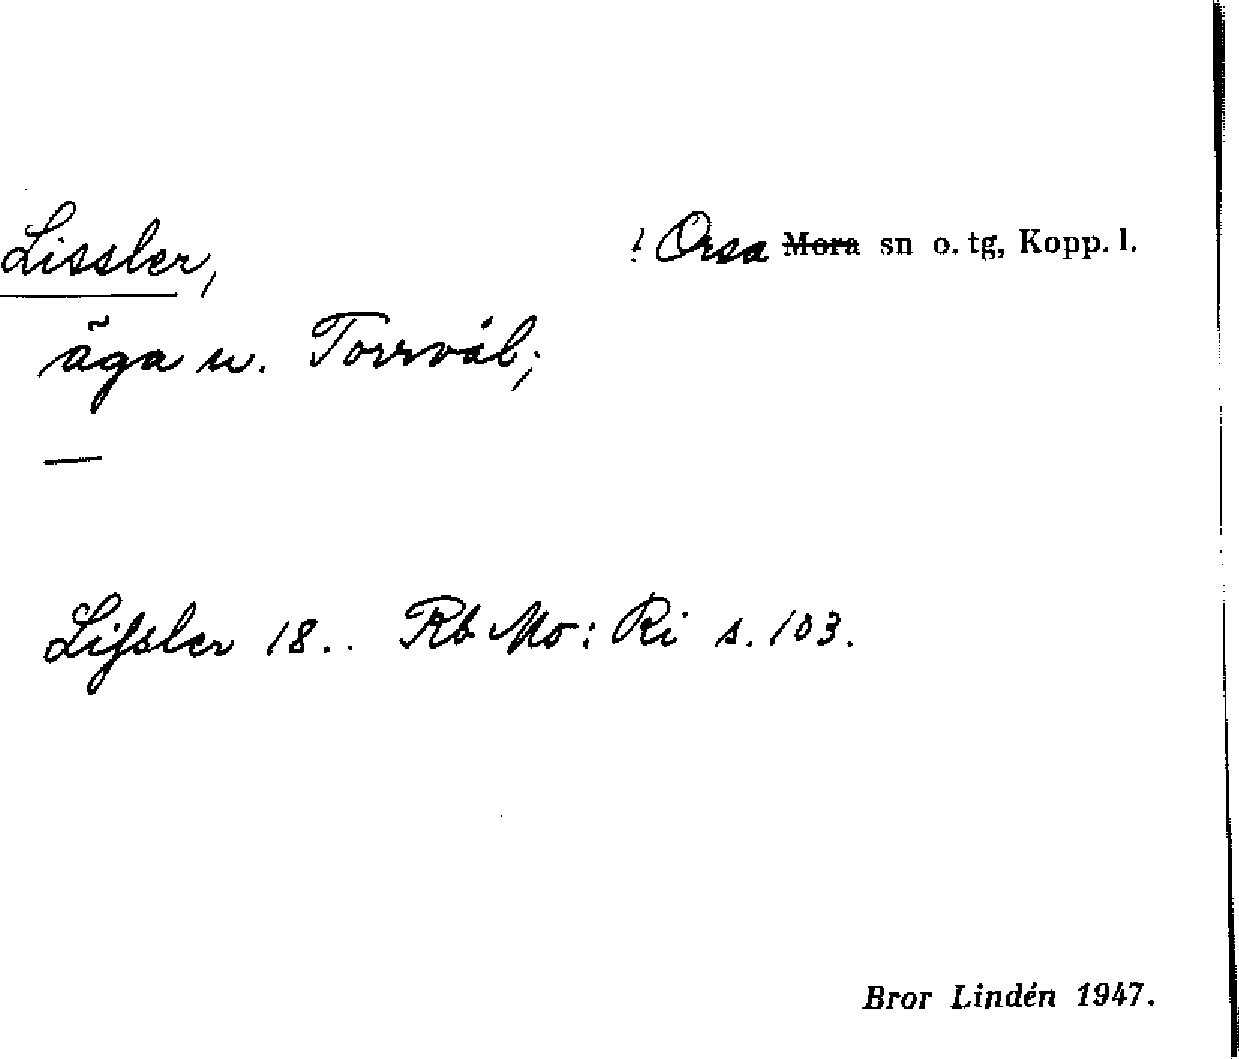 Lissler, ! Orsa Mora sn o. tg, Kopp. l.
äga u. Torrvål;
—
Liſsler 18.. Rb Mo: Ri s. 103.
Bror Lindén 1947.